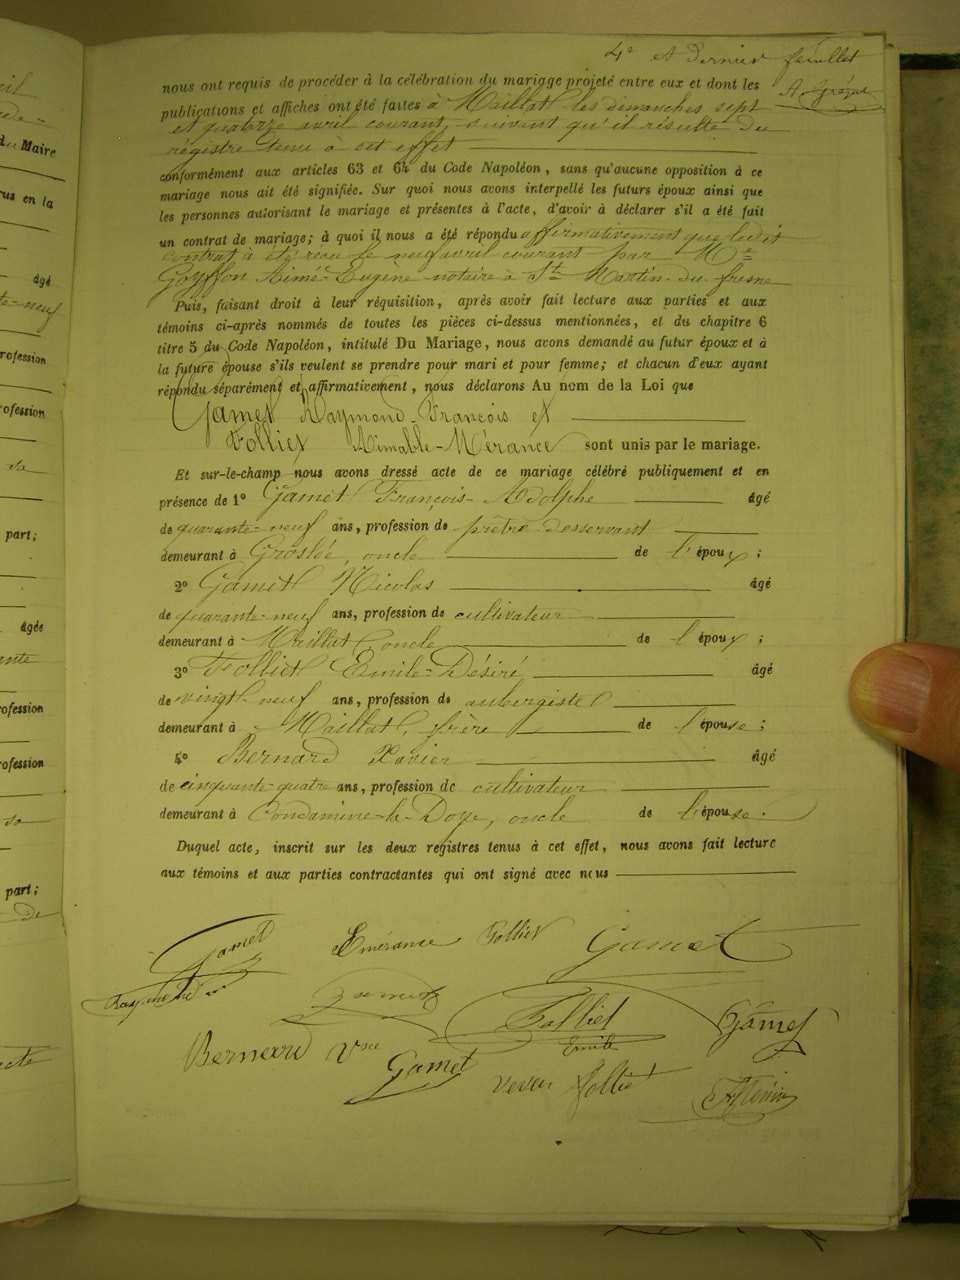 4e et Dernier feuillet
nous ont requis de procéder à la célébration du mariage projeté entre eux et dont les
publications et affiches ont été faites à Maillat les dimanches sept
et quatorze avril courant, suivant qu'il résulte du
régistre tenu à cet effet
conformément aux articles 63 et 64 du Code Napoléon, sans qu'aucune opposition à ce
mariage nous ait été signifiée. Sur quoi nous avons interpellé les futurs époux ainsi que
les personnes autorisant le mariage et présentes à l'acte, d'avoir à déclarer s'il a été fait
un contrat de mariage; à quoi il nous a été répondu affirmativement que ledit
contrat a été reçu le neuf avril courant par Me
Goyffon Aimé-Eugène notaire à St Martin-du-fresne
Puis, faisant droit à leur réquisition, après avoir fait lecture aux parties et aux
témoins ci-après nommés de toutes les pièces ci-dessus mentionnées, et du chapitre 6
titre 5 du Code Napoléon, intitulé Du Mariage, nous avons demandé au futur époux et à
la future épouse s'ils veulent se prendre pour mari et pour femme; et chacun d'eux ayant
répondu séparément et affirmativement, nous déclarons Au nom de la Loi que
Gamet Raymond-François et
Folliet Aimable-Mérance sont unis par le mariage.
Et sur-le-champ nous avons dressé acte de ce mariage célébré publiquement et en
présence de 1º Gamet François-Adolphe âgé
de quarante-neuf ans, profession de prêtre desservant
demeurant à Groslée, oncle de l'époux;
2º Gamet Nicolas âgé
de quarante-neuf ans, profession de cultivateur
demeurant à Maillat oncle de l'époux;
3º Folliet Emile-Désiré âgé
de vingt neuf ans, profession de aubergiste
demeurant à Maillat, frère de l'épouse;
4º Bernard Xavier âgé
de cinquante-quatre ans, profession de cultivateur
demeurant à Condamine-la-Doye, oncle de l'épouse.
Duquel acte, inscrit sur les deux registres tenus à cet effet, nous avons fait lecture
aux témoins et aux parties contractantes qui ont signé avec nous
Gamet Emérance Folliet Gamet
Raymond
Folliet Gamet
Emile
Bernard Vve
Gamet veuve Folliet